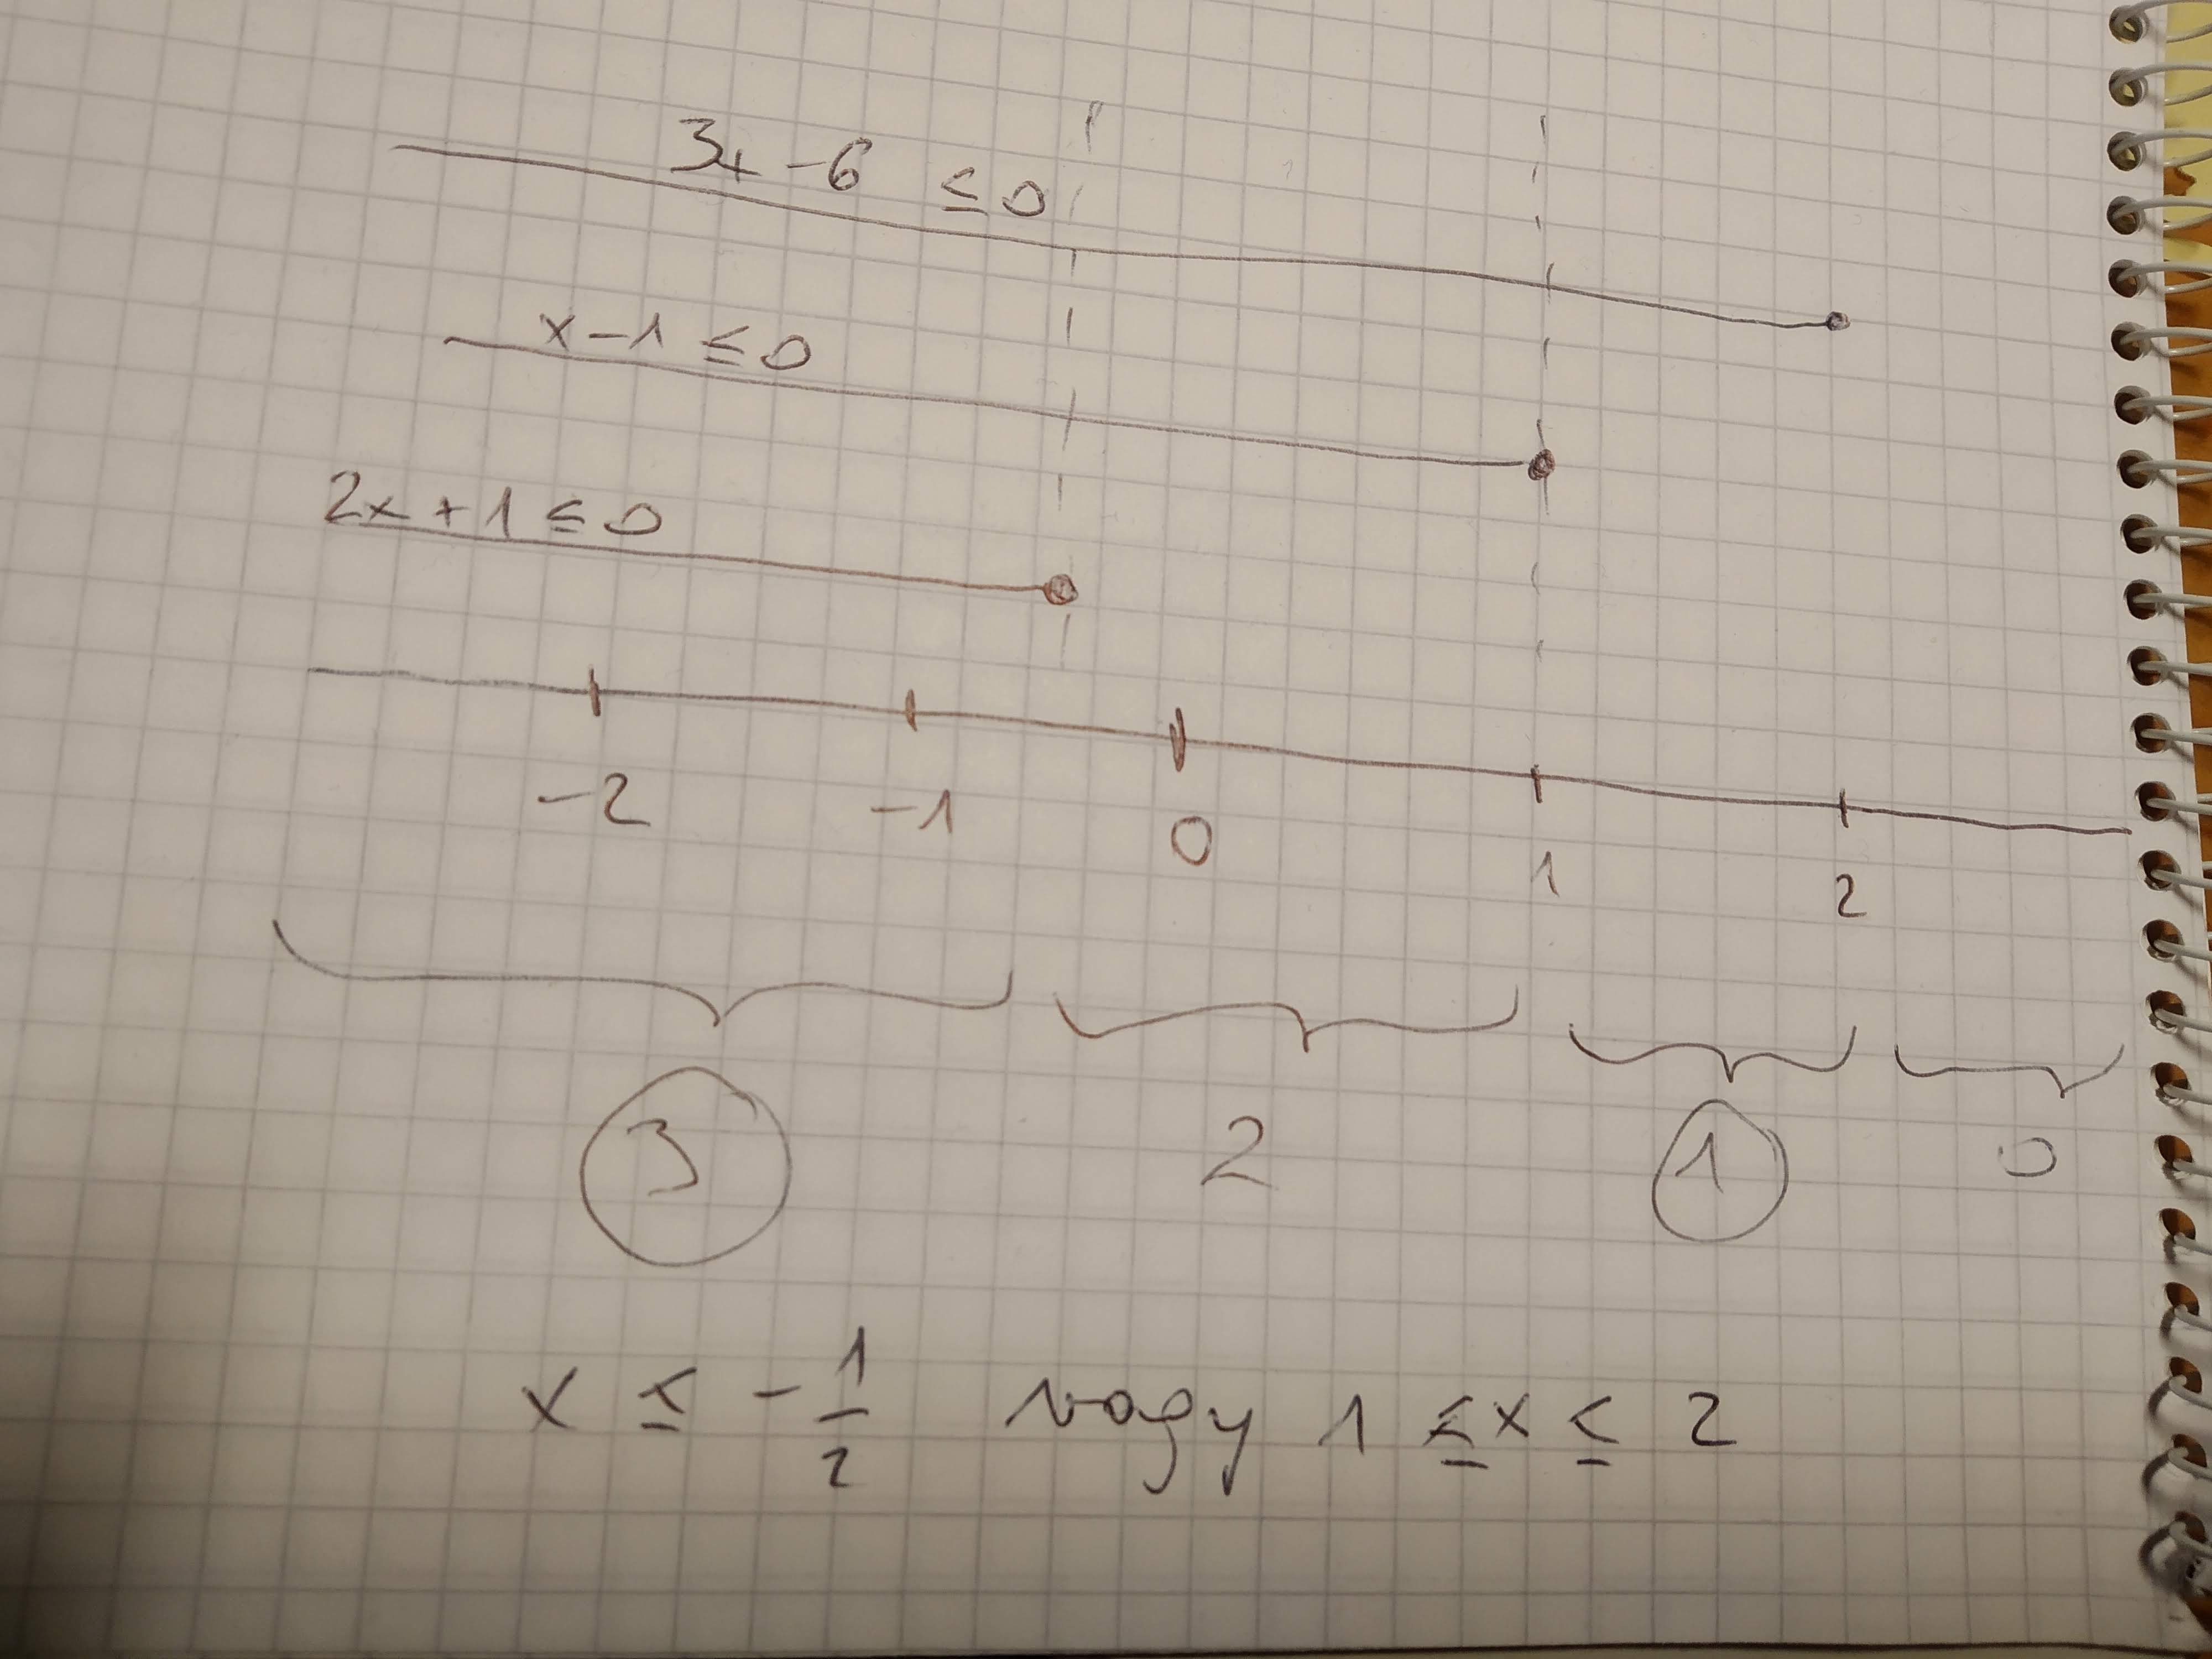 3x - 6 ≤ 0
x - 1 ≤ 0
2x + 1 ≤ 0
-2 -1 0 1 2
3 2 1 0
x ≤ - 1/2 vagy 1 ≤ x ≤ 2